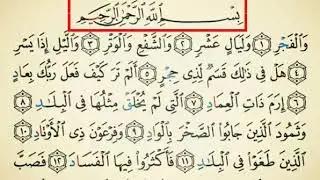 بِسْمِ اللَّهِ الرَّحْمَٰنِ الرَّحِيمِ
وَالْفَجْرِ ١ وَلَيَالٍ عَشْرٍ ٢ وَالشَّفْعِ وَالْوَتْرِ ٣ وَاللَّيْلِ إِذَا يَسْرِ
٤ هَلْ فِي ذَٰلِكَ قَسَمٌ لِّذِي حِجْرٍ ٥ أَلَمْ تَرَ كَيْفَ فَعَلَ رَبُّكَ بِعَادٍ
٦ إِرَمَ ذَاتِ الْعِمَادِ ٧ الَّتِي لَمْ يُخْلَقْ مِثْلُهَا فِي الْبِلَادِ ٨
وَثَمُودَ الَّذِينَ جَابُوا الصَّخْرَ بِالْوَادِ ٩ وَفِرْعَوْنَ ذِي الْأَوْتَادِ ١٠
الَّذِينَ طَغَوْا فِي الْبِلَادِ ١١ فَأَكْثَرُوا فِيهَا الْفَسَادَ ١٢ فَصَبَّ